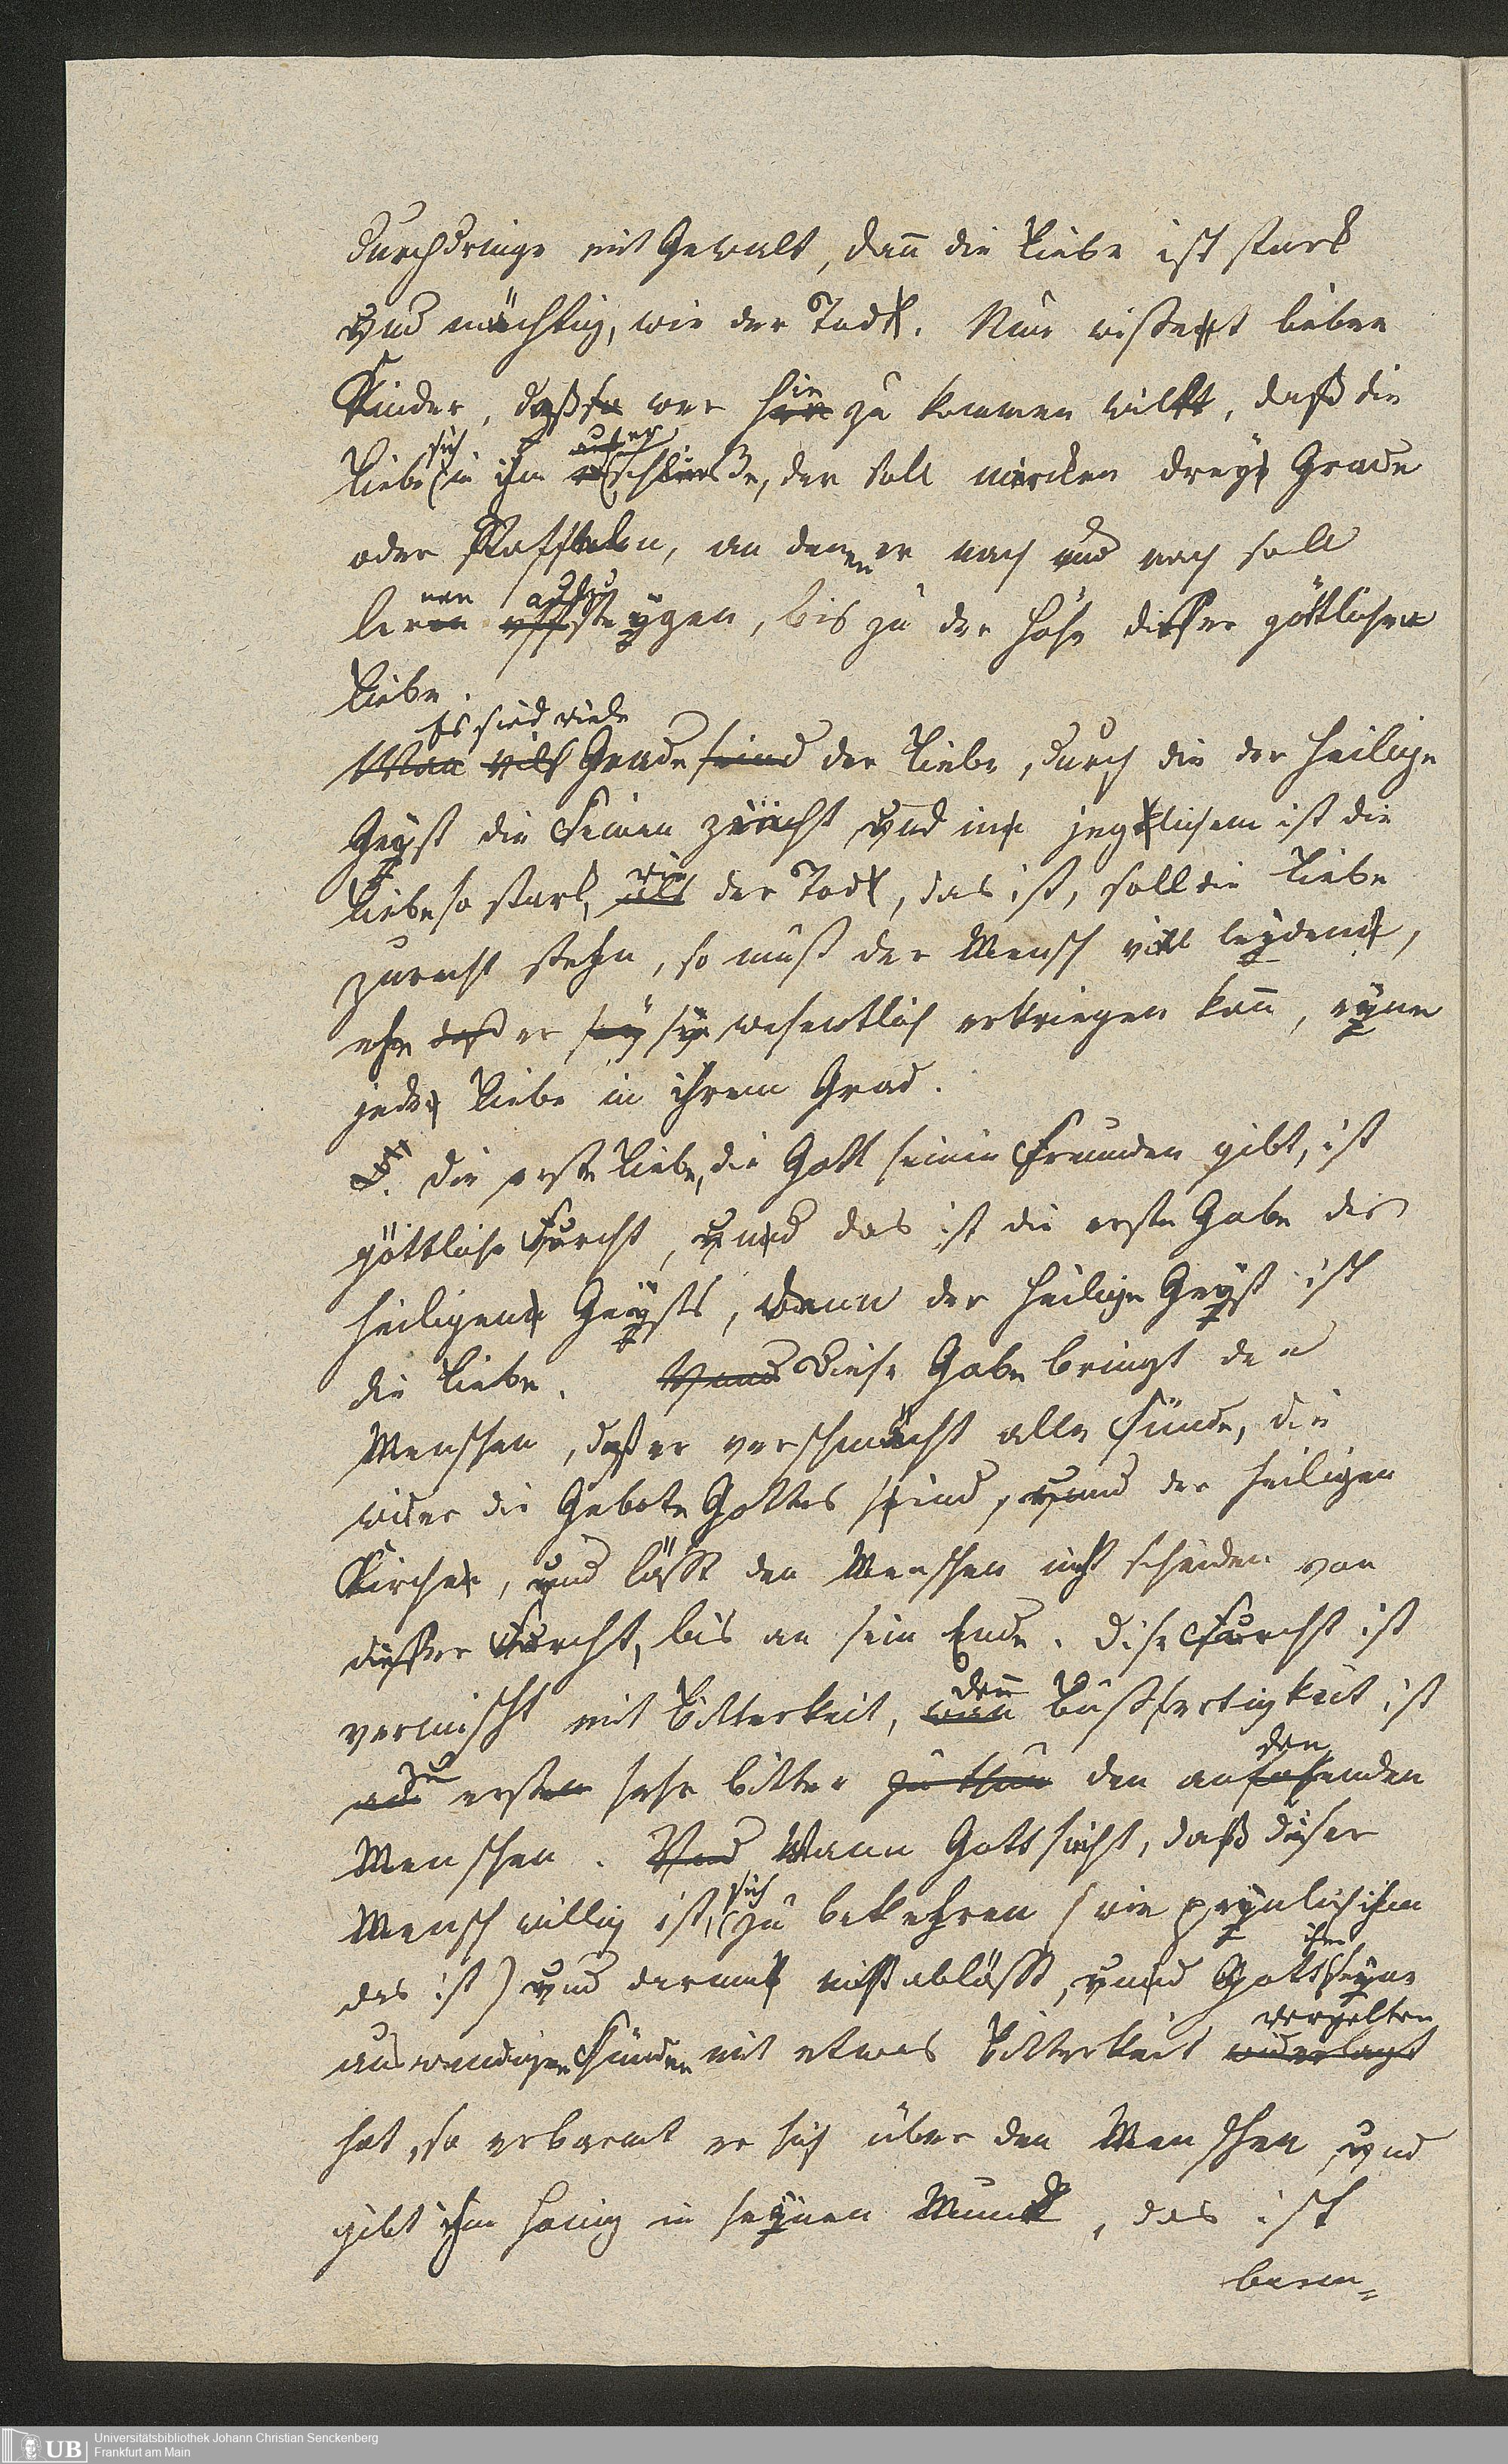 durchdringe mit Gewalt, dann die Liebe ist stark
und mächtig, wie der Tod. Nun wisset lieben
Kinder, daß wer hie zu kommen will, daß die
Liebe sich in ihm aufschließe, der soll mercken drey Grade
oder Staffeln, an denen er nach und nach soll
lernen aufsteygen, bis zu der Höhe dieser göttlichen
Liebe.
Es sind viele
Grade der Liebe, durch die der heilige
Geyst die Seinen zieht und in jeglichem ist die
Liebe so stark, wie der Tod, das ist, soll die Liebe
zurecht stehn, so muß der Mensch viel leyden,
ehe er sie wesentlich erkriegen kann, eyne
jede Liebe in ihrem Grad.
Die erste Liebe, die Gott seinen Freunden gibt, ist
göttliche Furcht, und das ist die erste Gabe des
heiligen Geysts, denn der heilige Geyst ist
die Liebe. Diese Gabe bringt den
Menschen, daß er verschmächt alle Sünde, die
wider die Gebote Gottes sind, und der heiligen
Kirche, und läßt den Menschen nicht scheiden von
dieser Furcht, bis an sein Ende. Dise Furcht ist
vermischt mit Bitterkeit, denn Bußfertigkeit ist
zuerst sehr bitter den anfahenden
Menschen. Wann Gott sieht, daß dieser
Mensch willig ist, sich zu bekehren (wie peynlich ihm
das ist) und darnach nicht abläßt, und Gott ihm seyne
auswendigen Sünden mit etwas Bitterkeit vergelten
hat, so erbarmt er sich über den Menschen und
gibt ihm Honig in seynen Mund, das ist
barm=
Universitätsbibliothek Johann Christian Senckenberg
UB Frankfurt am Main